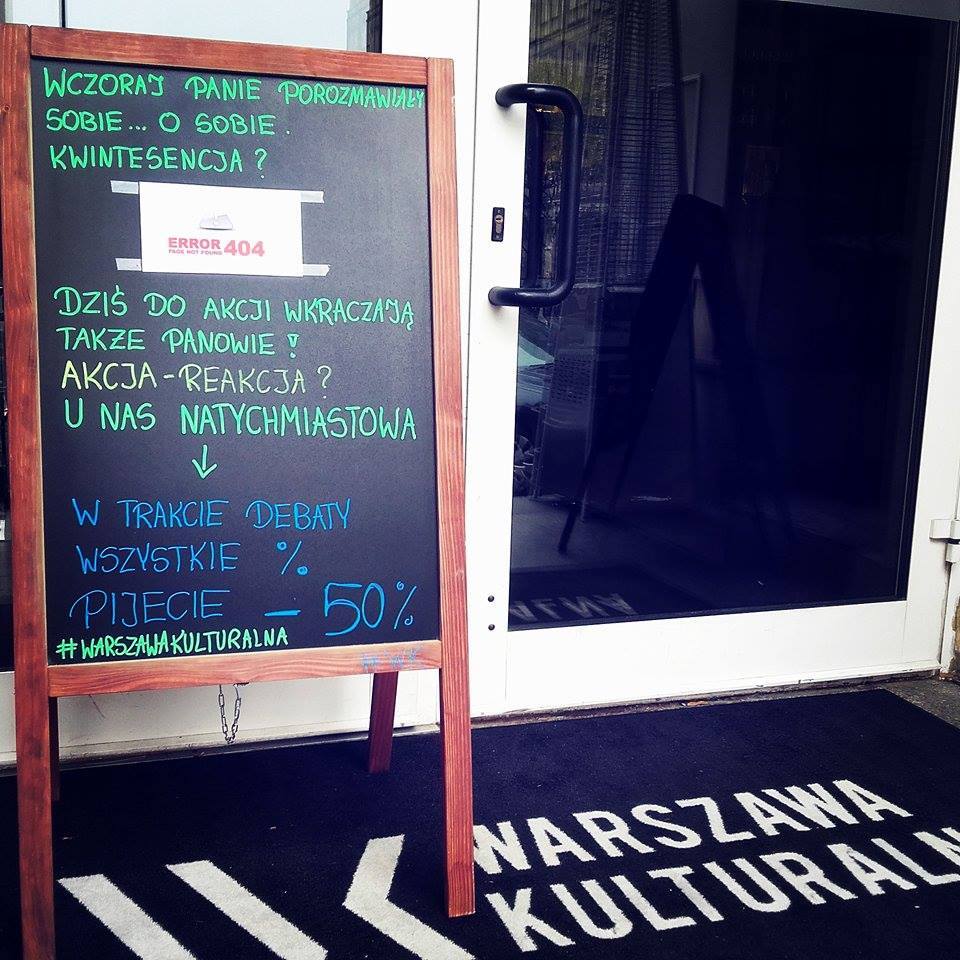 WCZORAJ PANIE POROZMAWIAŁY
SOBIE... O SOBIE.
KWINTESENCJA?
ERROR 404
PAGE NOT FOUND
DZIŚ DO AKCJI WKRACZAJĄ
TAKŻE PANOWIE!
AKCJA-REAKCJA?
U NAS NATYCHMIASTOWA
↓
W TRAKCIE DEBATY
WSZYSTKIE %
PIJECIE - 50%
#WARSZAWAKULTURALNA
WARSZAWA
KULTURALN